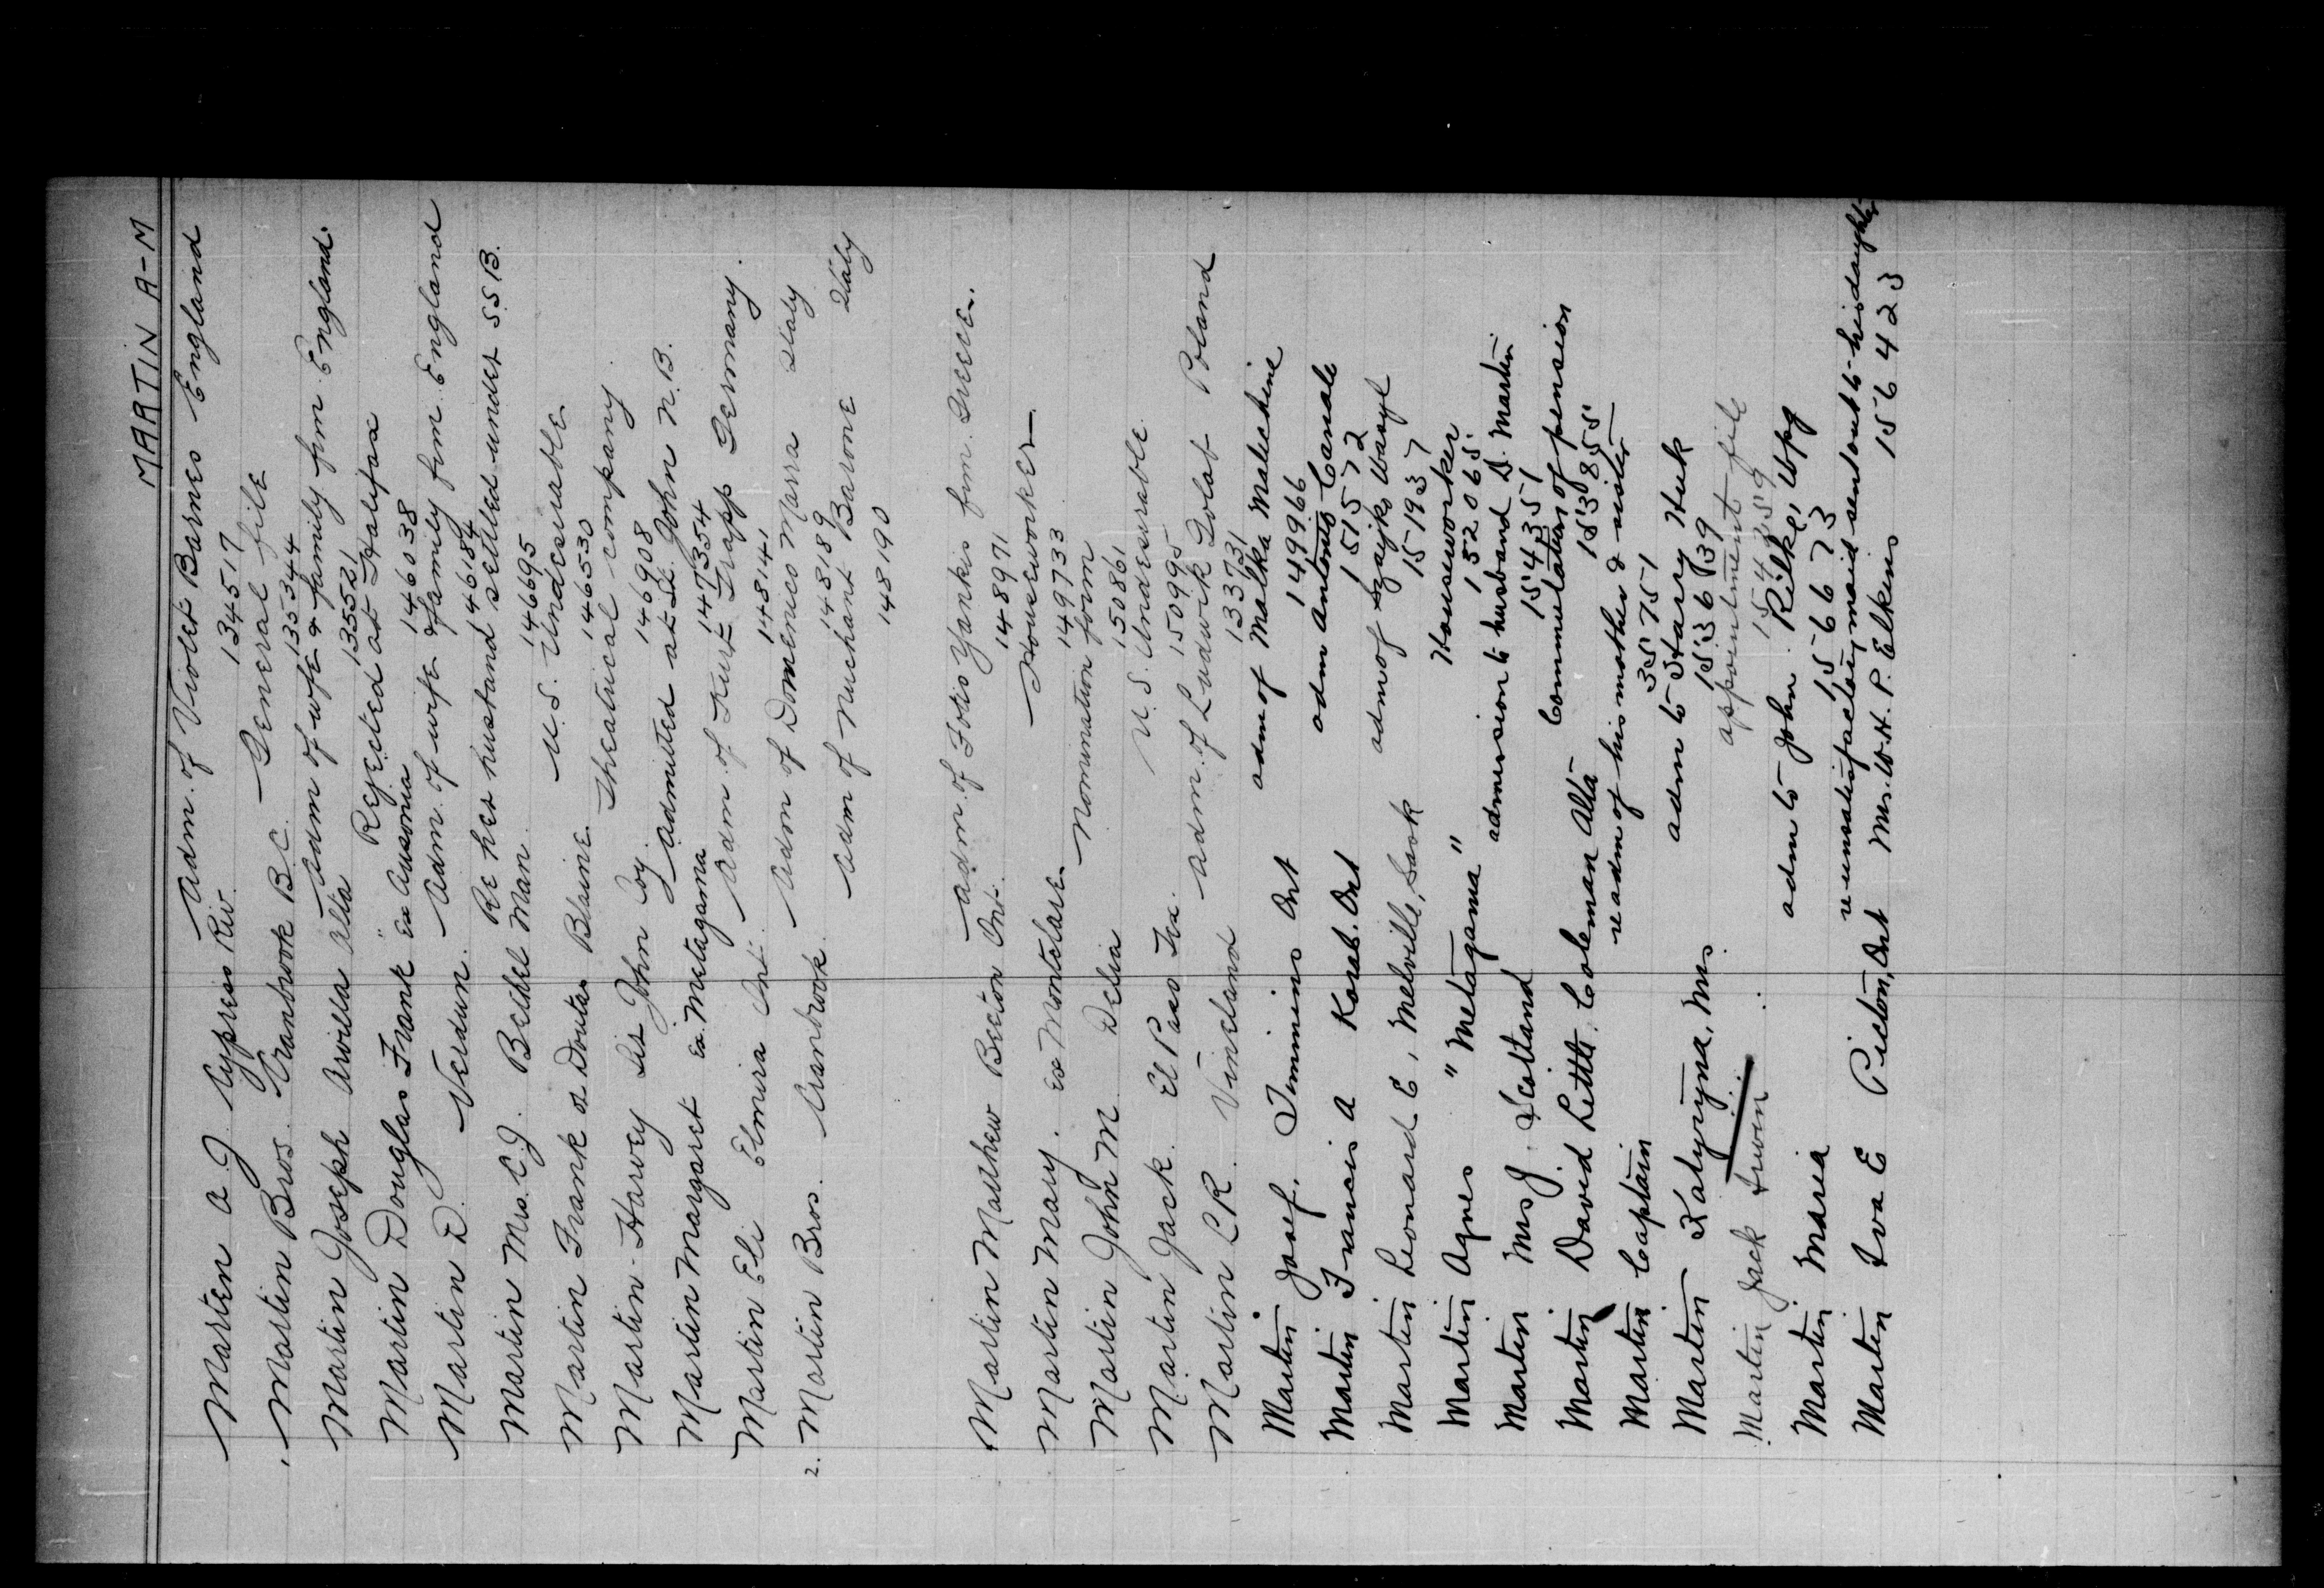 MARTIN A-M
Martin A J. Cypress Riv. Adm. of Violet Barnes England
134517
Martin Bros. Cranbrook B.C. General file
135344
Martin Joseph Arvilla Alta Adm of wife & family from England.
135521
Martin Douglas Frank Ex Ausonia Rejected at Halifax
146038
Martin D. Verdun. Adm. of wife & family from England
146184
Martin Mrs. C.J. Bethel Man. Re her husband settled under S.S.B.
146695
Martin Frank Blaine U.S. Undesirable
146530
Martin Harvey Sir John Coy. Theatrical company.
146908
Martin Margaret Ex. Metagama Admitted at St. John N.B.
147354
Martin Eli Elmira Ont. Adm. of Kurt Trapp Germany.
148141
2. Martin Bros. Cranbrook. Adm of Domenico Marra Italy
148189
Adm of Barone Italy
148190
Martin Mathew Beeton Ont. Adm. of Fotis Yankis from Greece.
148971
Martin Mary. Ex Montclare Houseworker
149733
Martin John M Delia Nomination form
150861
Martin Jack. El Paso Tex. U.S. Undesirable
150995
Martin C R. Vineland Adm. of Ludwik Golab Poland
133731
Martin Josef. Timmins Ont adm of Malka Malechine
149966
Martin Francis A Ont adm Antonio Canale
151572
Martin Leonard E, Melville, Sask adm of Szajko Wasyl
151937
Martin Agnes "Metagama" Houseworker
152065
Martin Mrs J. Scotland admission to husband D. Martin
154351
Martin David Letts. Coleman Alta Commutation of pension
153855
Martin Captain re adm of his mother & sister
35751
Martin Katyryna, Mrs. adm to Harry Huk
153639
Martin Jack Irwin appointment file
Martin Maria adm to John Rilke, Wpg
156673
Martin Iva E Picton, Ont re unsatisfactory maid sent out to his daughter
Mrs. W.H.P. Elkins 156423